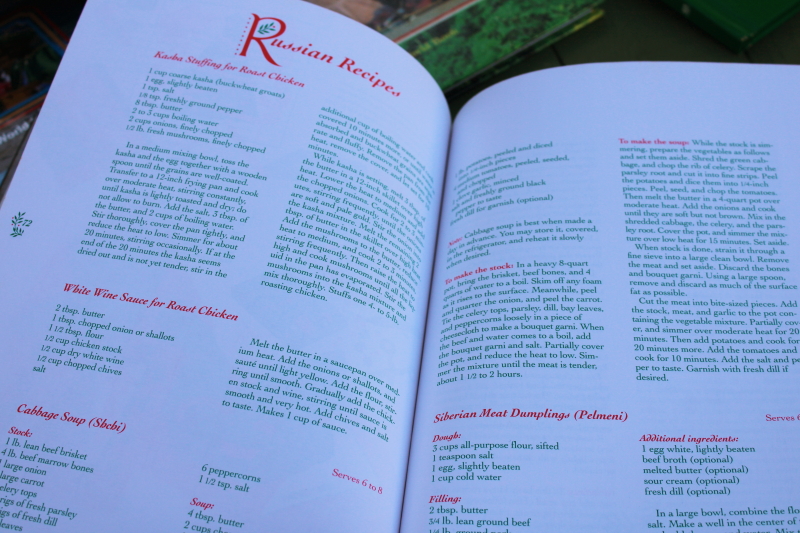 Russian Recipes
Kasha Stuffing for Roast Chicken
1 cup coarse kasha (buckwheat groats)
1 egg, slightly beaten
1 tsp. salt
1/8 tsp. freshly ground pepper
8 tbsp. butter
2 to 3 cups boiling water
2 cups onions, finely chopped
1/2 lb. fresh mushrooms, finely chopped
In a medium mixing bowl, toss the
kasha and the egg together with a wooden
spoon until the grains are well-coated.
Transfer to a 12-inch frying pan and cook
over moderate heat, stirring constantly,
until kasha is lightly toasted and dry; do
not allow to burn. Add the salt, 3 tbsp. of
the butter, and 2 cups of boiling water.
Stir thoroughly; cover the pan tightly; and
reduce the heat to low. Simmer for about
20 minutes, stirring occasionally. If at the
end of the 20 minutes the kasha seems
dried out and is not yet tender, stir in the
additional cup of boiling
covered 10 minutes
absorbed and
and fluffy. Remove
heat, remove the cover,
minutes.
While kasha is setting,
the butter in a 12-inch
heat. Lower the heat to
the chopped onions. Cook
utes, stirring frequently,
are soft and pale gold.
the kasha mixture. Melt the
tbsp. of butter in the skillet over
heat to medium, and cook 2 to 3
stirring frequently. Then raise the heat to
high and cook mushrooms until all
uid in the pan has evaporated. Stir the
mushrooms into the kasha mixture, and
mix thoroughly. Stuffs one 4- to 5-lb.
roasting chicken.
72
White Wine Sauce for Roast Chicken
2 tbsp. butter
1 tbsp. chopped onion or shallots
1 1/2 tbsp. flour
1/2 cup chicken stock
1/2 cup dry white wine
1/2 cup chopped chives
salt
Melt the butter in a saucepan over med-
ium heat. Add the onions or shallots, and
sauté until light yellow. Add the flour, stir-
ring until smooth. Gradually add the chick-
en stock and wine, stirring until sauce is
smooth and very hot. Add chives and salt
to taste. Makes 1 cup of sauce.
Cabbage Soup (Shchi)
Serves 6 to 8
Stock:
1 lb. lean beef brisket
4 lb. beef marrow bones
large onion
large carrot
celery tops
sprigs of fresh parsley
of fresh dill
leaves
6 peppercorns
1 1/2 tsp. salt
Soup:
4 tbsp. butter
potatoes, peeled and diced
1/4-inch pieces
tomatoes, peeled, seeded,
minced
freshly ground black
to taste
dill for garnish (optional)
Note: Cabbage soup is best when made a
day in advance. You may store it, covered,
in the refrigerator, and reheat it slowly
when desired.
To make the stock: In a heavy 8-quart
bring the brisket, beef bones, and 4
quarts of water to a boil. Skim off any foam
it rises to the surface. Meanwhile, peel
and quarter the onion, and peel the carrot.
Tie the celery tops, parsley, dill, bay leaves,
and peppercorns loosely in a piece of
cheesecloth to make a bouquet garni. When
the beef and water comes to a boil, add
the bouquet garni and salt. Partially cover
the pot, and reduce the heat to low. Sim-
mer the mixture until the meat is tender,
about 1 1/2 to 2 hours.
To make the soup: While the stock is sim-
mering, prepare the vegetables as follows
and set them aside. Shred the green cab-
bage, and chop the rib of celery. Scrape the
parsley root and cut it into fine strips. Peel
the potatoes and dice them into 1/4-inch
pieces. Peel, seed, and chop the tomatoes.
Then melt the butter in a 4-quart pot over
moderate heat. Add the onions and cook
until they are soft but not brown. Mix in the
shredded cabbage, the celery, and the pars-
ley root. Cover the pot, and simmer the mix-
ture over low heat for 15 minutes. Set aside.
When stock is done, strain it through a
fine sieve into a large clean bowl. Remove
the meat and set aside. Discard the bones
and bouquet garni. Using a large spoon,
remove and discard as much of the surface
fat as possible.
Cut the meat into bite-sized pieces. Add
the stock, meat, and garlic to the pot con-
taining the vegetable mixture. Partially cov-
er, and simmer over moderate heat for 20
minutes. Then add potatoes and cook for
20 minutes more. Add the tomatoes and
cook for 10 minutes. Add the salt and pep-
per to taste. Garnish with fresh dill if
desired.
Siberian Meat Dumplings (Pelmeni)
Serves 6
Dough:
3 cups all-purpose flour, sifted
1 teaspoon salt
1 egg, slightly beaten
1 cup cold water
Filling:
2 tbsp. butter
3/4 lb. lean ground beef
Additional ingredients:
1 egg white, lightly beaten
beef broth (optional)
melted butter (optional)
sour cream (optional)
fresh dill (optional)
In a large bowl, combine the flour
salt. Make a well in the center of